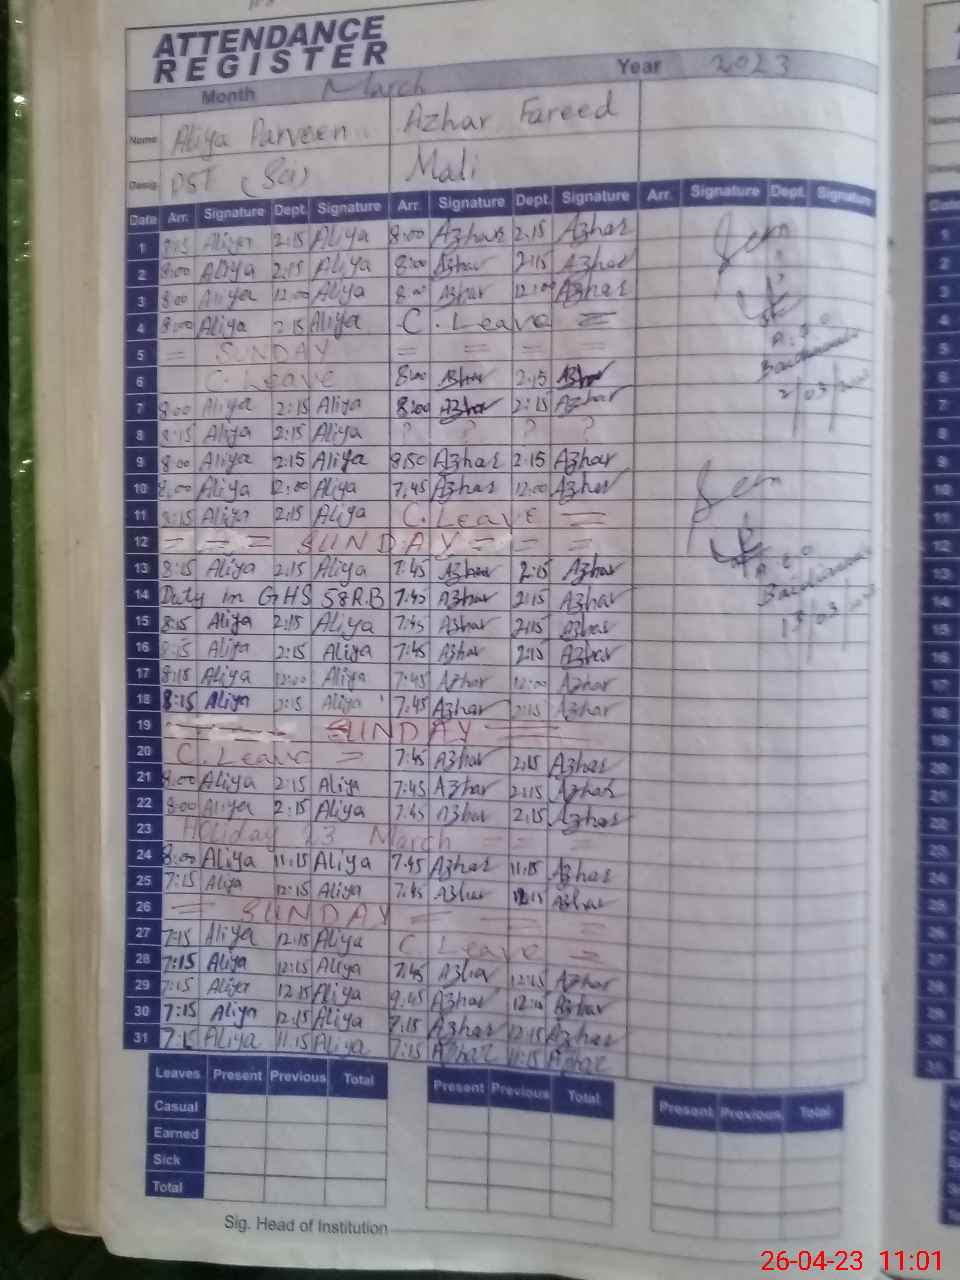 ATTENDANCE
REGISTER
Month March Year 2023
Name Aliya Parveen Azhar Fareed
Desig. DST (Sci) Mali
Date Arr. Signature Dept. Signature Arr. Signature Dept. Signature Arr. Signature Dept. Signature
1 8:15 Aliya 2:15 Aliya 8:00 Azhar 2.15 Azhar
2 8:00 Aliya 2:15 Aliya 8:00 Azhar 2:15 Azhar
3 8:00 Aliya 12:00 Aliya 8:00 Azhar 12:00 Azhar
4 8:00 Aliya 2:15 Aliya C. Leave =
5 = SUNDAY = = = =
6 C. Leave 8:00 Azhar 2.15 Azhar
7 8:00 Aliya 2:15 Aliya 8:00 Azhar 2:15 Azhar
8 8:15 Aliya 2:15 Aliya ? ? ? ?
9 8:00 Aliya 2:15 Aliya 8:50 Azhar 2.15 Azhar
10 8:00 Aliya 12:00 Aliya 7.45 Azhar 12:00 Azhar
11 8:15 Aliya 2:15 Aliya C. Leave =
12 = = = SUNDAY = = =
13 8:15 Aliya 2:15 Aliya 7:45 Azhar 2:15 Azhar
14 Duty in GHS 58R.B 7:45 Azhar 2:15 Azhar
15 8:15 Aliya 2:15 Aliya 7:45 Azhar 2:15 Azhar
16 8:15 Aliya 2:15 Aliya 7:45 Azhar 2:15 Azhar
17 8:15 Aliya 12:00 Aliya 7:45 Azhar 12:00 Azhar
18 8:15 Aliya 2:15 Aliya 7.45 Azhar 2:15 Azhar
19 SUNDAY
20 C. Leave = 7:45 Azhar 2.15 Azhar
21 8:00 Aliya 2:15 Aliya 7:45 Azhar 2:15 Azhar
22 8:00 Aliya 2:15 Aliya 7:45 Azhar 2:15 Azhar
23 Holiday 23 March = = =
24 8:00 Aliya 11:15 Aliya 7.45 Azhar 11:15 Azhar
25 7:15 Aliya 12:15 Aliya 7:45 Azhar 12:15 Azhar
26 = SUNDAY = = =
27 7:15 Aliya 12:15 Aliya C. Leave =
28 7:15 Aliya 12:15 Aliya 7:45 Azhar 12:15 Azhar
29 7:15 Aliya 12.15 Aliya Azhar Azhar
30 7:15 Aliya 12:15 Aliya 7:15 Azhar 12:15 Azhar
31 7:15 Aliya 11:15 Aliya 7:15 Azhar 11:15 Azhar
Leaves Present Previous Total Present Previous Total Present Previous Total
Casual
Earned
Sick
Total
Sig. Head of Institution
26-04-23 11:01